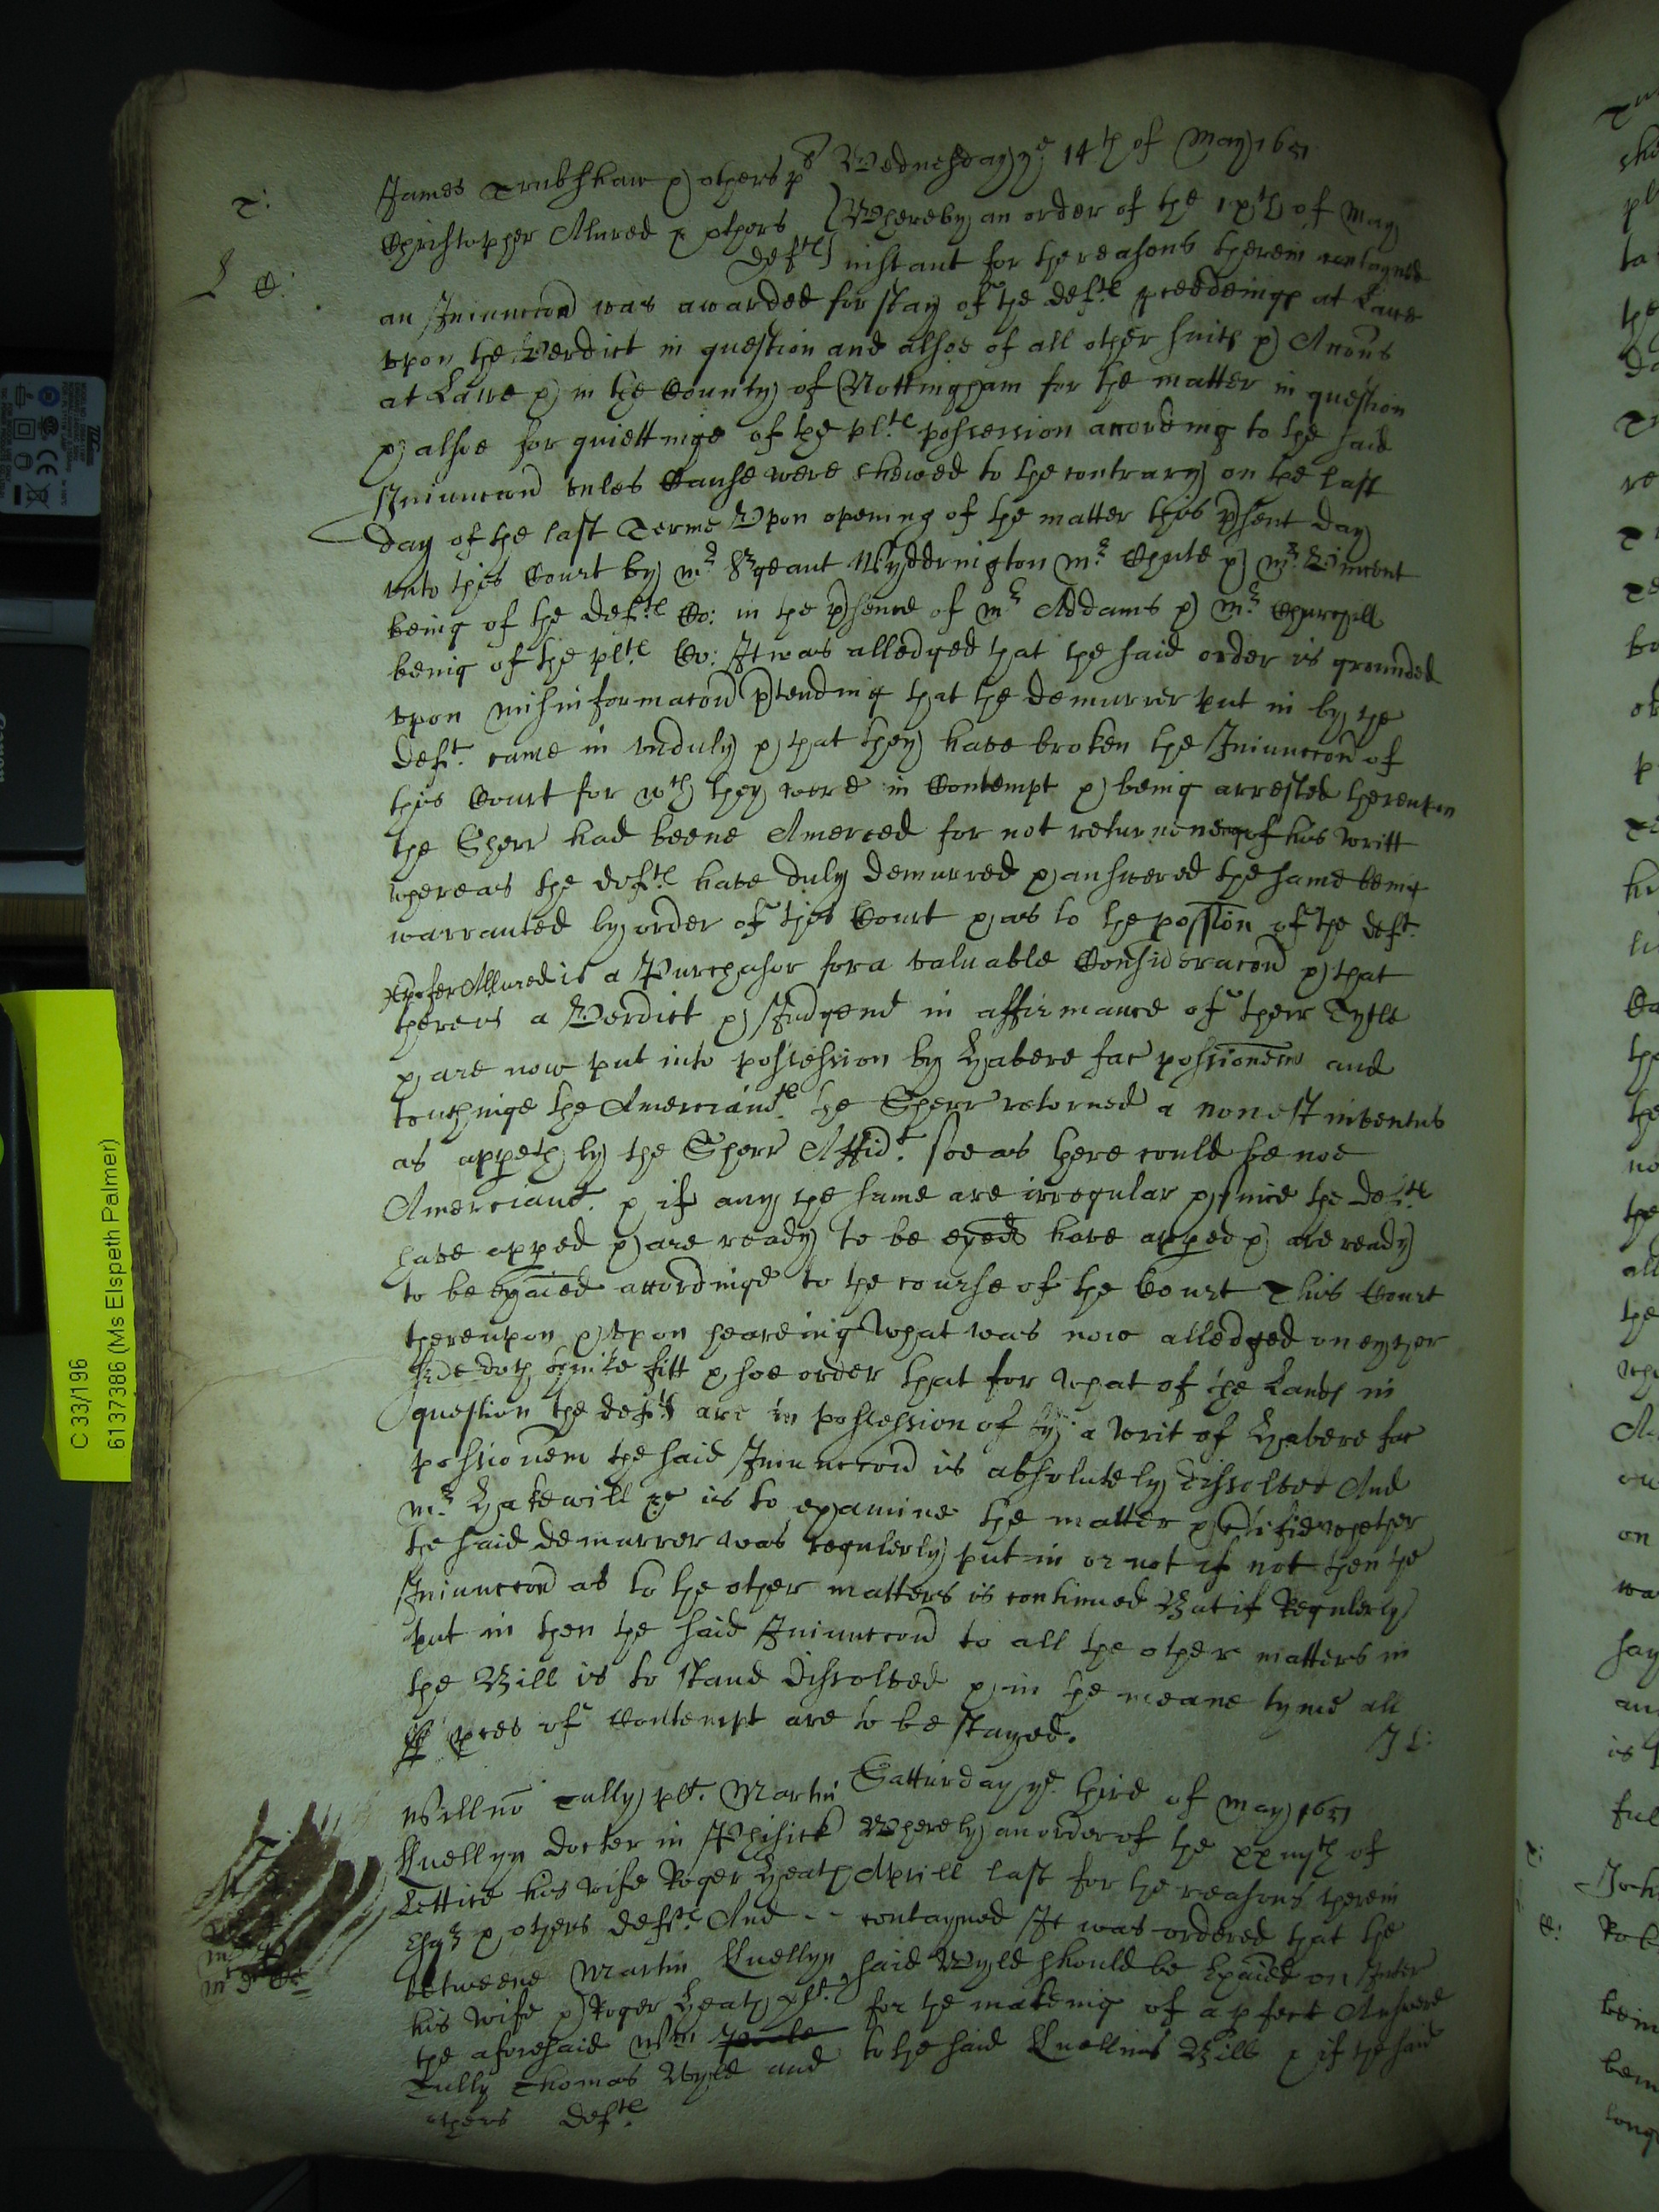 T:
L C:
Wednesday ye 14th of May 1651
James Trubshaw & others pls
Christopher Alured & others
deftes
Whereby an order of the ixth of May
instant for the reasons therein contayned
an Iniunccon was awarded for stay of the deftes proceedeings at Lawe
vpon the Verdict in question and alsoe of all other suits & Accons
at Lawe & in the County of Nottingham for the matter in question
& alsoe for quiettinge of the pltes possession according to the said
Iniunccon vnles Cause were shewed to the contrary on the last
day of the last Terme Vpon opening of the matter this psent day
vnto this Court by mr Srgeant Wydderington mr Chute & mr Vincent
being of the deftes Co: in the psence of mr Addams & mr Churchill
being of the pltes Co: It was alledged that the said order is grounded
vpon misinformacon ptending that the demurrer put in by the
deft. came in vnduly & that they have broken the Iniunccon of
this Court for wch they were in Contempt & being arrested therevpon
the Sherr had beene Amerced for not returneing of his writt
whereas the deftes have duly demurred & answered the same being
warranted by order of this Court & as to the possion of the deft.
Xpofer Allured is a Purchasor for a valuable Consideracon & that
there is a Verdict & Iudgemt in affirmance of their Tytle
& are now put into possession by Habere fac possionem and
touchinge the Amerciamtes the Sherr retorned a non est inventus
as appeth by the Sherr Affidt. soe as there could be noe
Amerciamt. & if any the same are irregular & since the deftes
have apped & are ready to be exaed have apped & are ready
to be exaied accordinge to the course of the Court This Court
therevpon & vpon heareing what was now alledged on eyther
side doth thinke fitt & soe order that for what of the Lands in
question the deftes are in possession of by a writ of Habere fac
possionem the said Iniunccon is absolutely dissolved And
mr Hakewill is to examine the matter & certifie whether
the said demurrer was regulerly put in or not if not then the
Iniunccon as to the other matters is continued But if Regulerly
put in then the said Iniunccon to all the other matters in
the Bill is to stand dissolved & in the meane tyme all
pces of Contempt are to be stayed.
J L:
Satturday ye third of May 1651
Willm Tully plt. Martin
Lluellyn Docter in Phisick
Lettice his wife Roger Heath
Esqr & others deftes And
betweene Martin Lluellyn
his wife & Roger Heath plt.
the aforesaid Wm
Tully Thomas Wyld and
others deftes
Whereby an order of the xxiiijth of
Aprill last for the reasons therein
contayned It was ordered that the
said Wyld should be Exaied on Inter
for the makeing of a pfect Answere
to the said Lluellins Bill & if the said
C 33/196
61373786 (Ms Elspeth Palmer)